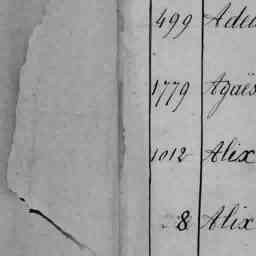 499 Adel
1779 Agaës
1012 Alix
8 Alix